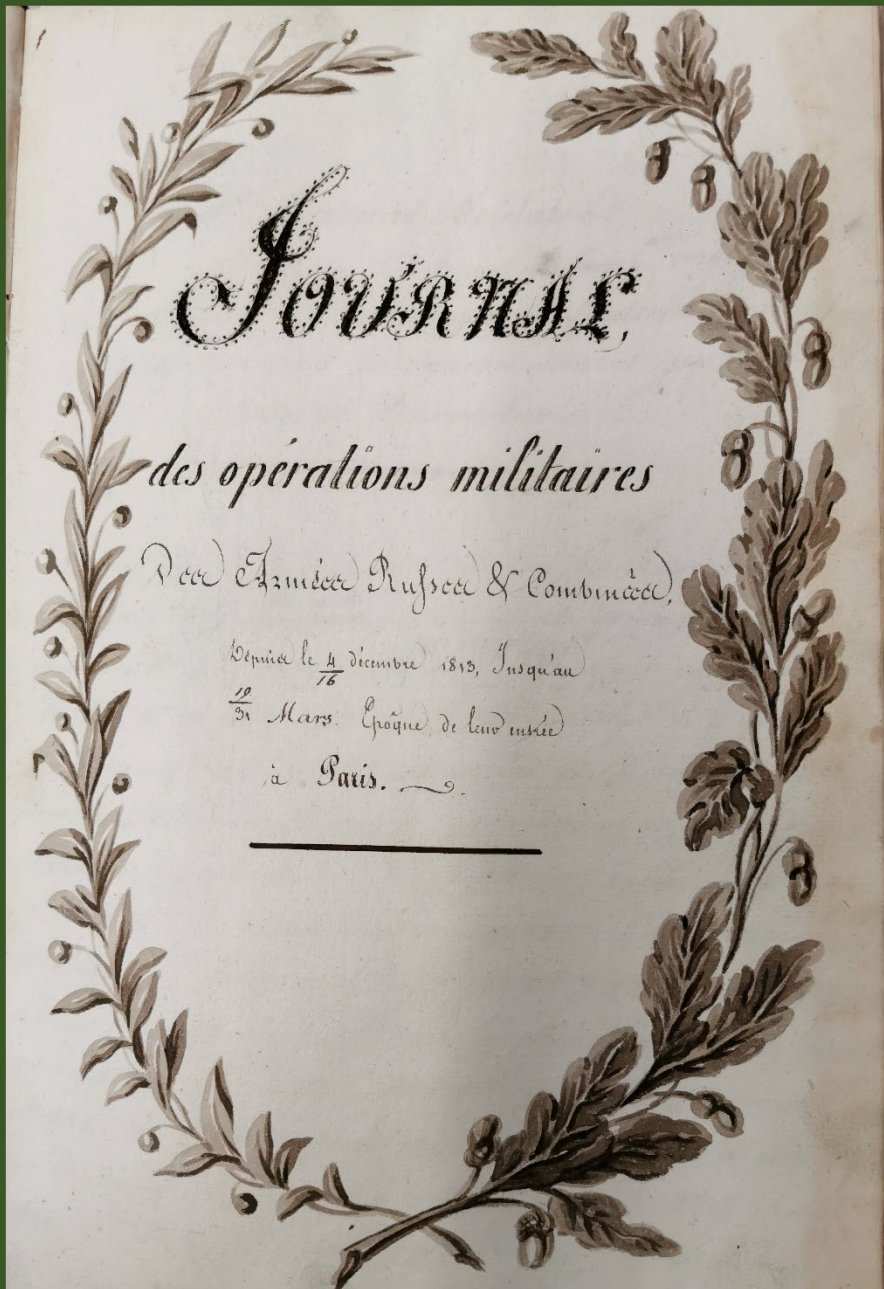 JOURNAL
des opérations militaires
Des Armées Russes & Combinées,
Depuis le 4/16 décembre 1813, Jusqu'au
19/31 Mars. Epoque de leur entrée
à Paris.